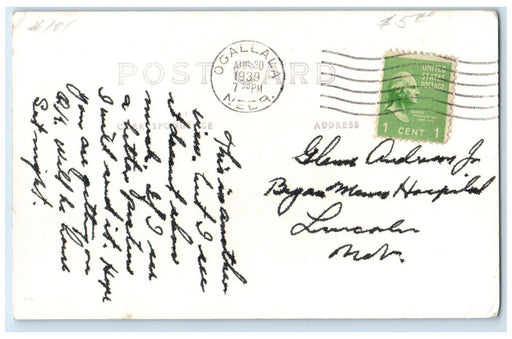 #101
$5.00
POST CARD
OGALLALA
AUG 30
1939
7 30 PM
NEBR.
UNITED
STATES
POSTAGE
1 CENT 1
CORRESPONDENCE
ADDRESS
Glenn Andrews Jr
Bryan Memo Hospital
Lincoln
Nebr.
This is another
view but I see
it doesnt show
much. If I see
a better picture
I will send it. Hope
you are getting on
O.K. will be Home
Sat night.